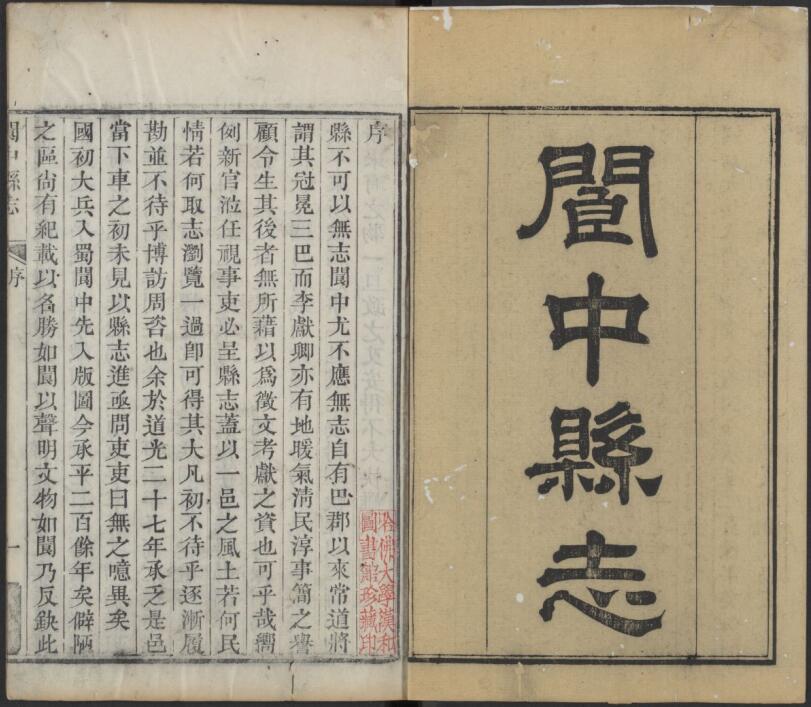 閬中縣志
序
縣不可以無志閬中尤不應無志自有巴郡以來常道將
謂其冠冕三巴而李獻卿亦有地暖氣清民淳事簡之譽
顧令生其後者無所藉以爲徵文考獻之資也可乎哉嚮
例新官涖任視事吏必呈縣志蓋以一邑之風土若何民
情若何取志瀏覽一過卽可得其大凡初不待乎逐漸履
勘並不待乎博訪周咨也余於道光二十七年承乏是邑
當下車之初未見以縣志進亟問吏吏曰無之噫異矣
國初大兵入蜀閬中先入版圖今承平二百餘年矣僻陋
之區尙有紀載以名勝如閬以聲明文物如閬乃反缺此
閬中縣志
序
一
哈佛大學漢和
圖書館珍藏印